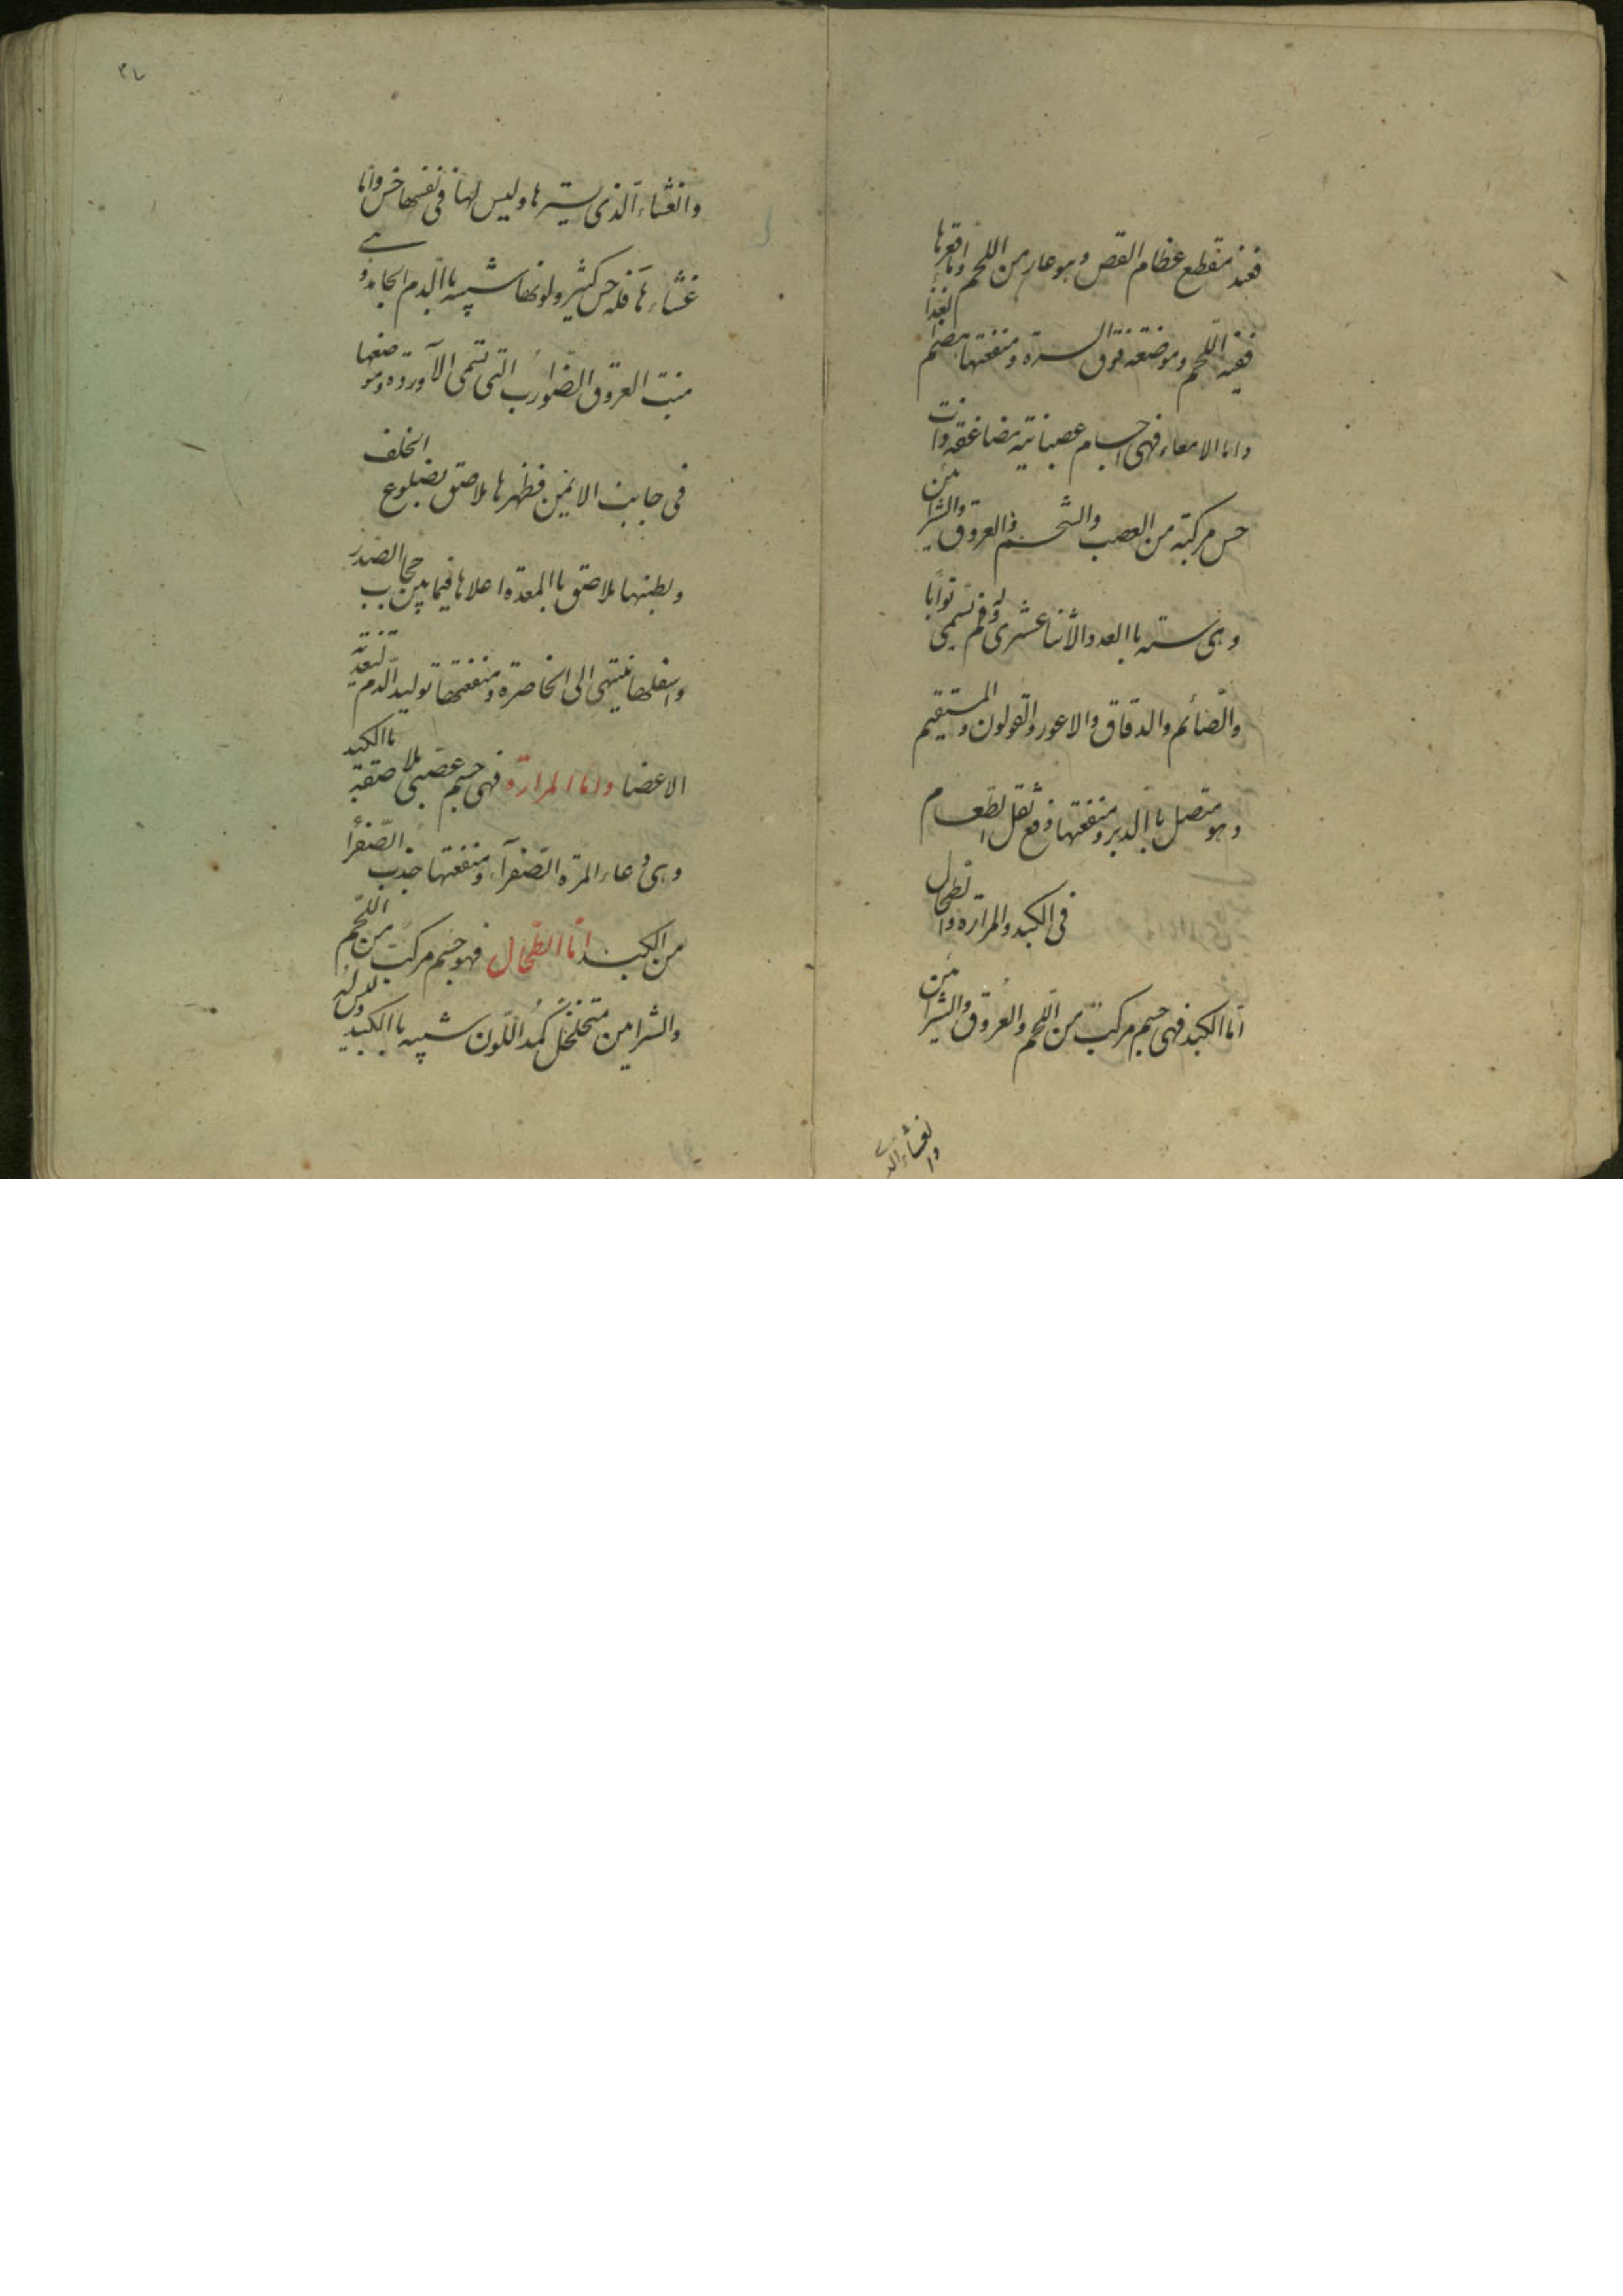 فعند منقطع عظام القص وهو عار من اللحم واما قعرها
ففيه اللحم وموضعه فوق السرة ومنفعتها تهضم الغذا
واما الامعاء فهى اجسام عصبانية مضاعفه وذات
حس مركبة من العصب والشحم والعروق والشرائن
وهى سته باالعدد الأثنا عشرى وله فم تسمى بوابا
والصّائم والدقاق والاعور والقولون والمستقيم
وهو متصل باالدبر ومنفعتها دفع ثقل الطعام
فى الكبد والمرارة والطحال
امّا الكبد فهى جسم مركبّ من اللّحم والعُروق والشرائن
والغشاء الذى
٢٧
والغشاء الّذى يسترها وليس لها فى نفسها حس وامّا
غشاءها فله حس كثير ولونها شبيه باالدم الجامد وهى
منبت العروق الضوارب التى تسمى الآورده وموضعها
فى جانب الايمن فظهرها ملاصق بضلوع الخلف
وبطنها ملاصق باالمعدة اعلاها فيما بين حجاب الصّدر
واسفلها ينتهى الى الخاصرة ومنفعتها توليد الّدم لتغذية
الاعضا واما المرارة فهى جسم عصبى ملاصقة باالكبد
وهى وعاء المرّة الصّفرآء ومنفعتها جذب الصّفرا
من الكبد امّا الطّحال فهو جسم مركب من اللّحم
والشرايين متخلخل كمد اللّون شبيه باالكبد وليس له